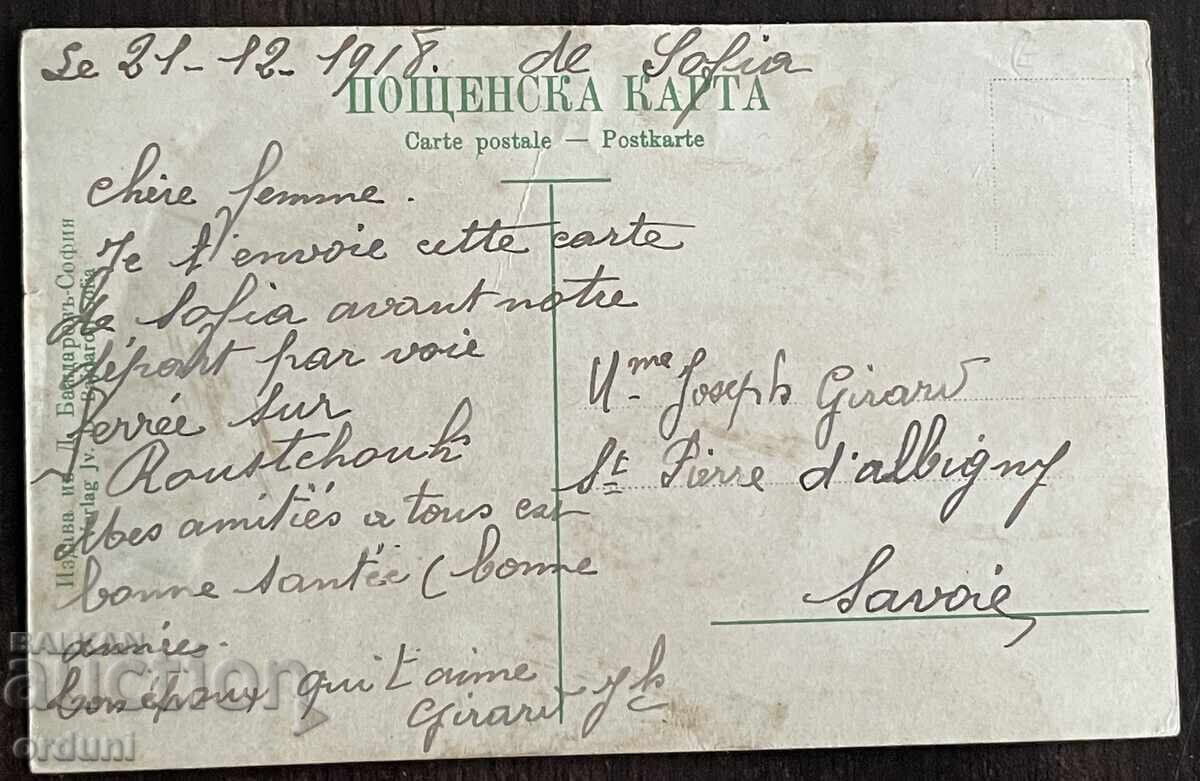 Le 21-12-1918. de Sofia
ПОЩЕНСКА КАРТА
Carte postale — Postkarte
chère femme.
Je t'envoie cette carte
de Sofia avant notre
départ par voie
ferrée sur
Roustchouk
Mes amitiés a tous
bonne santée (bonne
année.
bon époux qui t'aime
Girard Jh
Mme Joseph Girard
St Pierre d'albigny
Savoie
Издава Ив. Д. Баждаровъ-София
Verlag Jv. D. Bajdaroff-Sofia
BALKAN
auction
orduni